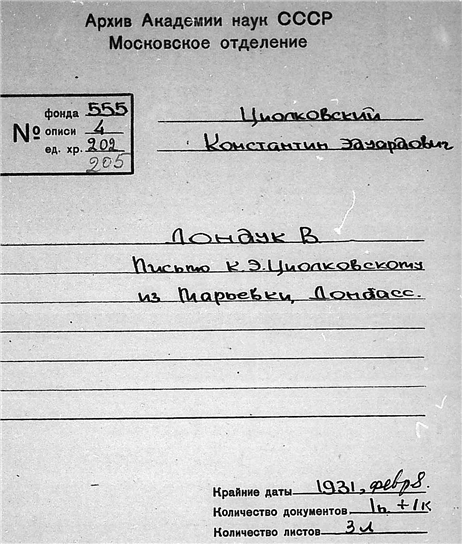 Архив Академии наук СССР
Московское отделение
фонда 555
№ описи 4
ед. хр. 202
205
Циолковский
Константин Эдуардович
Дондук В
Письмо К.Э.Циолковскому
из Марьевки, Донбасс.
Крайние даты 1931, февр 8.
Количество документов 1п. +1к
Количество листов 3л